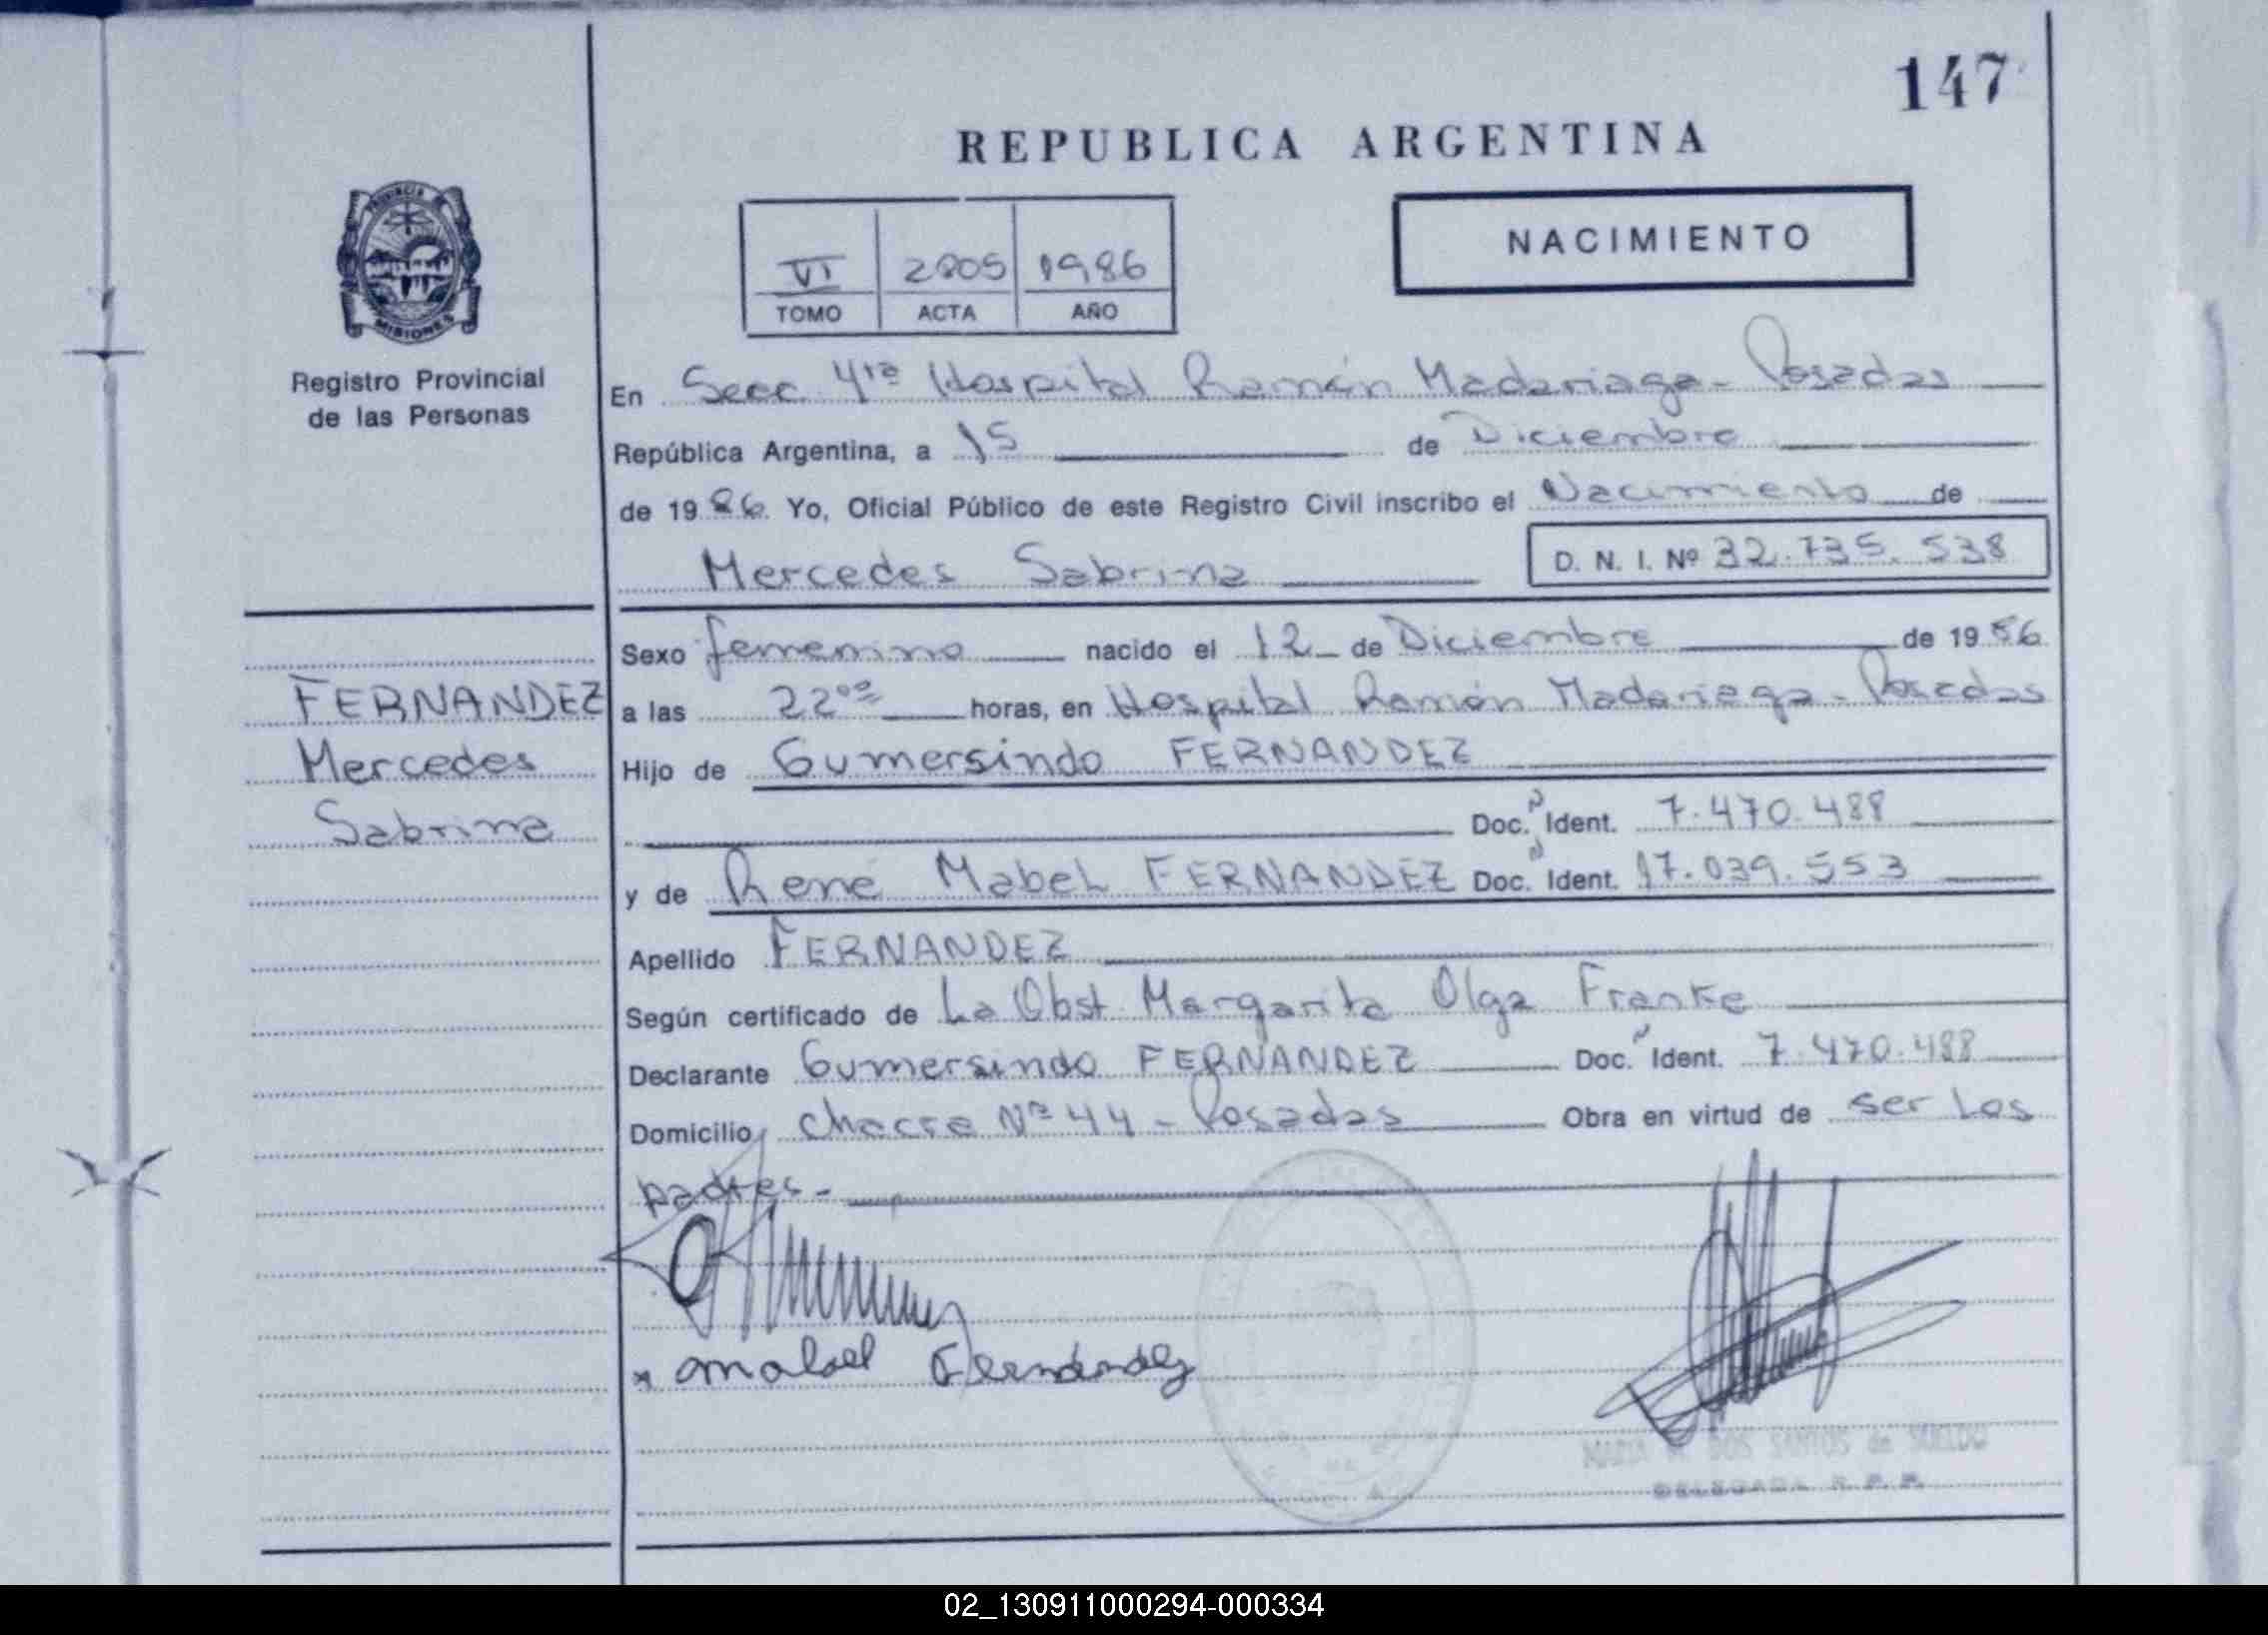 147
REPUBLICA ARGENTINA
PROVINCIA DE
MISIONES
Registro Provincial
de las Personas
NACIMIENTO
VI 2805 1986
TOMO ACTA AÑO
En Secc. 4ta Hospital Ramón Madariaga - Posadas
República Argentina, a 15 de Diciembre
de 1986 Yo, Oficial Público de este Registro Civil inscribo el Nacimiento de
Mercedes Sabrina D. N. I. Nº 32.735.538
Sexo femenino nacido el 12 de Diciembre de 1986
a las 22 horas, en Hospital Ramón Madariaga - Posadas
Hijo de Gumersindo FERNANDEZ
Doc. Ident. 7.470.488
y de René Mabel FERNANDEZ Doc. Ident. 17.039.553
Apellido FERNANDEZ
Según certificado de La Obst. Margarita Olga Franke
Declarante Gumersindo FERNANDEZ Doc. Ident. 7.470.488
Domicilio Chacra Nº 44 - Posadas Obra en virtud de ser los
padres -
FERNANDEZ
Mercedes
Sabrina
mabel Fernández
DOS SANTOS de SUELDO
DELEGADA R. P. P.
02_130911000294-000334